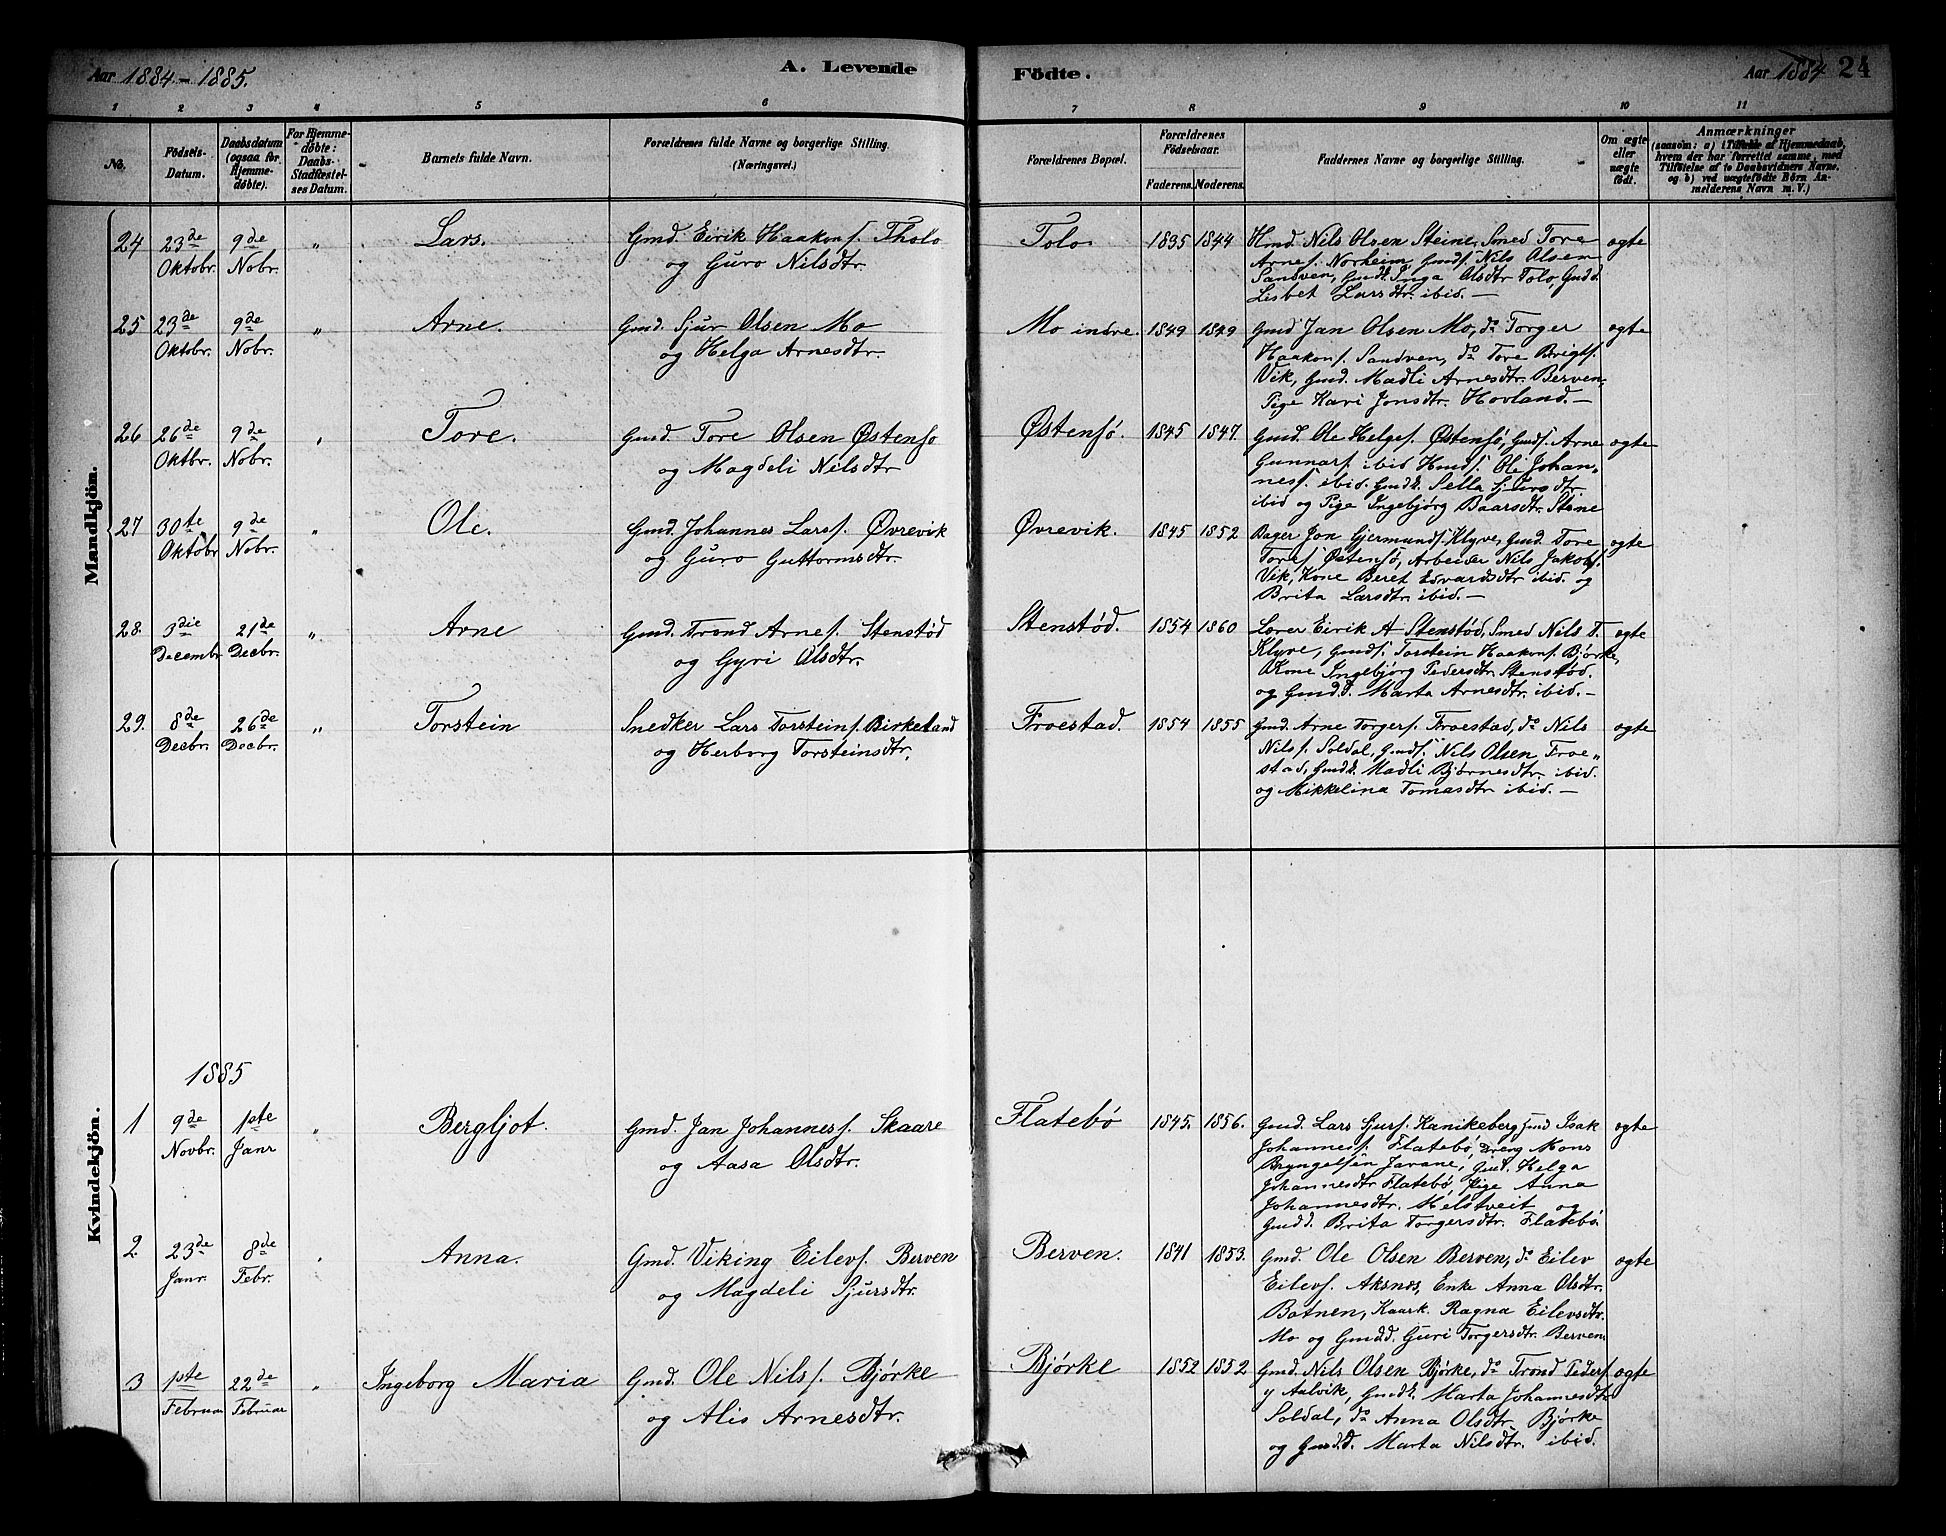 Aar 1884-1885.
A. Levende
Födte.
Aar 1884 24
1 2 3 4 5 6 7 8 9 10 11
No.
Födsels-
Datum.
Daabsdatum
(ogsaa for
Hjemme-
døbte).
For Hjemme-
døbte:
Daabs-
Stadfæstel-
ses Datum.
Barnets fulde Navn.
Forældrenes fulde Navne og borgerlige Stilling.
(Næringsvei.)
Forældrenes Bopæl.
Forældrenes
Födselsaar.
Faderens. Moderens.
Faddernes Navne og borgerlige Stilling.
Om ægte
eller
uægte
født.
Anmærkninger
(saasom: a) i Tilfælde af Hjemmedaab,
hvem der har forrettet samme, med
Tilföielse af to Daabsvidners Navne,
og b) ved uægtefödte Börn An-
melderens Navn m. V.)
Mandkjön.
24 23de 9de " Lars. Gmd. Eirik Haakons. Tholo Tolo 1835 1844 Hmd Nils Olsen Steine, Smed Tore ægte
Oktobr. Nobr. og Guro Nilsdtr. Arnes. Norheim, Gmds. Nils Olsen
Sandven, Gmdk. Inga Olsdtr Tolo, Gmdd.
Lisbet Larsdtr. ibid. —
25 23de 9de " Arne. Gmd. Sjur Olsen Mo Mo indre. 1849 1849 Gmd Jan Olsen Mo, do Torger ægte
Oktobr. Nobr. og Helga Arnesdtr. Haakons. Sandven, do Tore Brigts.
Vik, Gmd. Madli Arnesdtr. Berven,
Pige Kari Jonsdtr. Hovland. —
26 26de 9de " Tore. Gmd. Tore Olsen Østensø Østensø. 1845 1847. Gmd. Ole Helges. Østensø, Gmds. Arne ægte
Oktbr. Nobr. og Magdeli Nilsdtr Gunnars. ibid Hmds. Ole Johan„
ness. ibid. Gmdk. Sella Sjursdtr
ibid og Pige Ingebjørg Baarsdtr. Stene
27 30te 9de " Ole. Gmd. Johannes Lars. Øvrevik Øvrevik. 1845 1852 Bager Jon Gjermunds. Klyve, Gmd. Tore ægte
Oktobr Nobr. og Guro Guttormsdtr. Tores. Østensø, Arbeider Nils Jakobs.
Vik, Kone Beret Edvardsdtr ibid. og
Brita Larsdtr. ibid. —
28. 3die 21de " Arne Gmd. Trond Arnes. Stenstød Stenstød. 1854 1860 Lærer Eirik A Stenstød, Smed Nils T. ægte
Decembr Decbr. og Gyri Olsdtr. Klyve, Gmds. Torstein Haakons. Bjørke,
Kone Ingebjørg Pedersdtr. Stenstød.
og Gmdd. Marta Arnesdtr. ibid. —
29. 8de 26de " Torstein Snedker Lars Torsteins. Birkeland Froestad. 1854 1855 Gmd. Arne Torgers. Froestad, do Nils ægte
Decbr. Decbr. og Herborg Torsteinsdtr. Nils s. Soldal, Gmds. Nils Olsen, Froe„
stad, Gmdk. Madli Bjørnesdtr. ibid.
og Mikkelina Tomasdtr ibid. —
Kvindekjön.
1885
1 9de 1ste " Bergljot. Gmd. Jan Johanness. Skaare Flatebø 1845. 1856. Gmd. Lars Sjurs. Kanikeberg Gmd Isak ægte
Novbr. Janr og Aasa Olsdtr. Johanness. Flatebø, Dreng Mons
Bryngelsen Javane, Helga
Johannesdtr Flatebø, Pige Anna
Johannesdtr. Helstveit og
Gmdd. Brita Torgersdtr. Flatebø.
2 23de 8de " Anna. Gmd. Viking Eilevs. Berven Berven. 1841 1853. Gmd. Ole Olsen Berven, do Eilev ægte
Janr. Febr. og Magdeli Sjursdtr. Eilevs. Aksnes, Enke Anna Olsdtr.
Botnen, Kaark. Ragna Eilevsdtr.
Mo og Gmdd. Guri Torgersdtr. Berven
3 1ste 22de " Ingeborg Maria Gmd. Ole Nils s. Bjørke Bjørke 1852 1852 Gmd. Nils Olsen Bjørke, do Trond Peders. ægte
Februar Februar og Alis Arnesdtr. y Aalvik, Gmdk. Marta Johannesdtr
Soldal, do Anna Olsdtr. Bjørke
og Gmdd. Marta Nilsdtr. ibid.